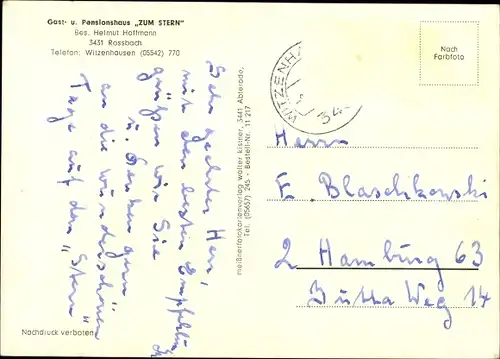 Gast- u. Pensionshaus „ZUM STERN"
Bes. Helmut Hoffmann
3431 Rossbach
Telefon: Witzenhausen (05542) 770
Nach
Farbfoto
WITZENH
34
Sehr geehrter Herr,
mit den besten Empfehlun
grüßen wir Sie
u. denken gern
an die wunderschönen
Tage auf dem „Stern"
meißnerfotokartenverlag walter kistner, 3441 Abterode,
Tel. (05657) 245 - Bestell-Nr. 11 217
Herrn
E. Blaschkowski
2 Hamburg 63
Weg 14
Nachdruck verboten